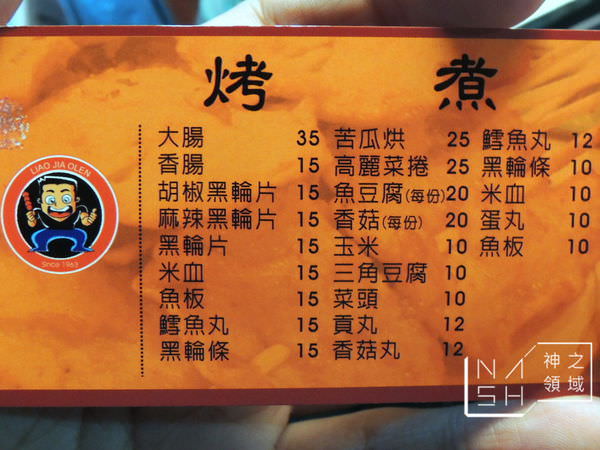 烤 煮
LIAO JIA OLEN
Since 1963
大腸 35
香腸 15
胡椒黑輪片 15
麻辣黑輪片 15
黑輪片 15
米血 15
魚板 15
鱈魚丸 15
黑輪條 15
苦瓜烘 25
高麗菜捲 25
魚豆腐(每份) 20
香菇(每份) 20
玉米 10
三角豆腐 10
菜頭 10
貢丸 12
香菇丸 12
鱈魚丸 12
黑輪條 10
米血 10
蛋丸 10
魚板 10
NASH 神之領域